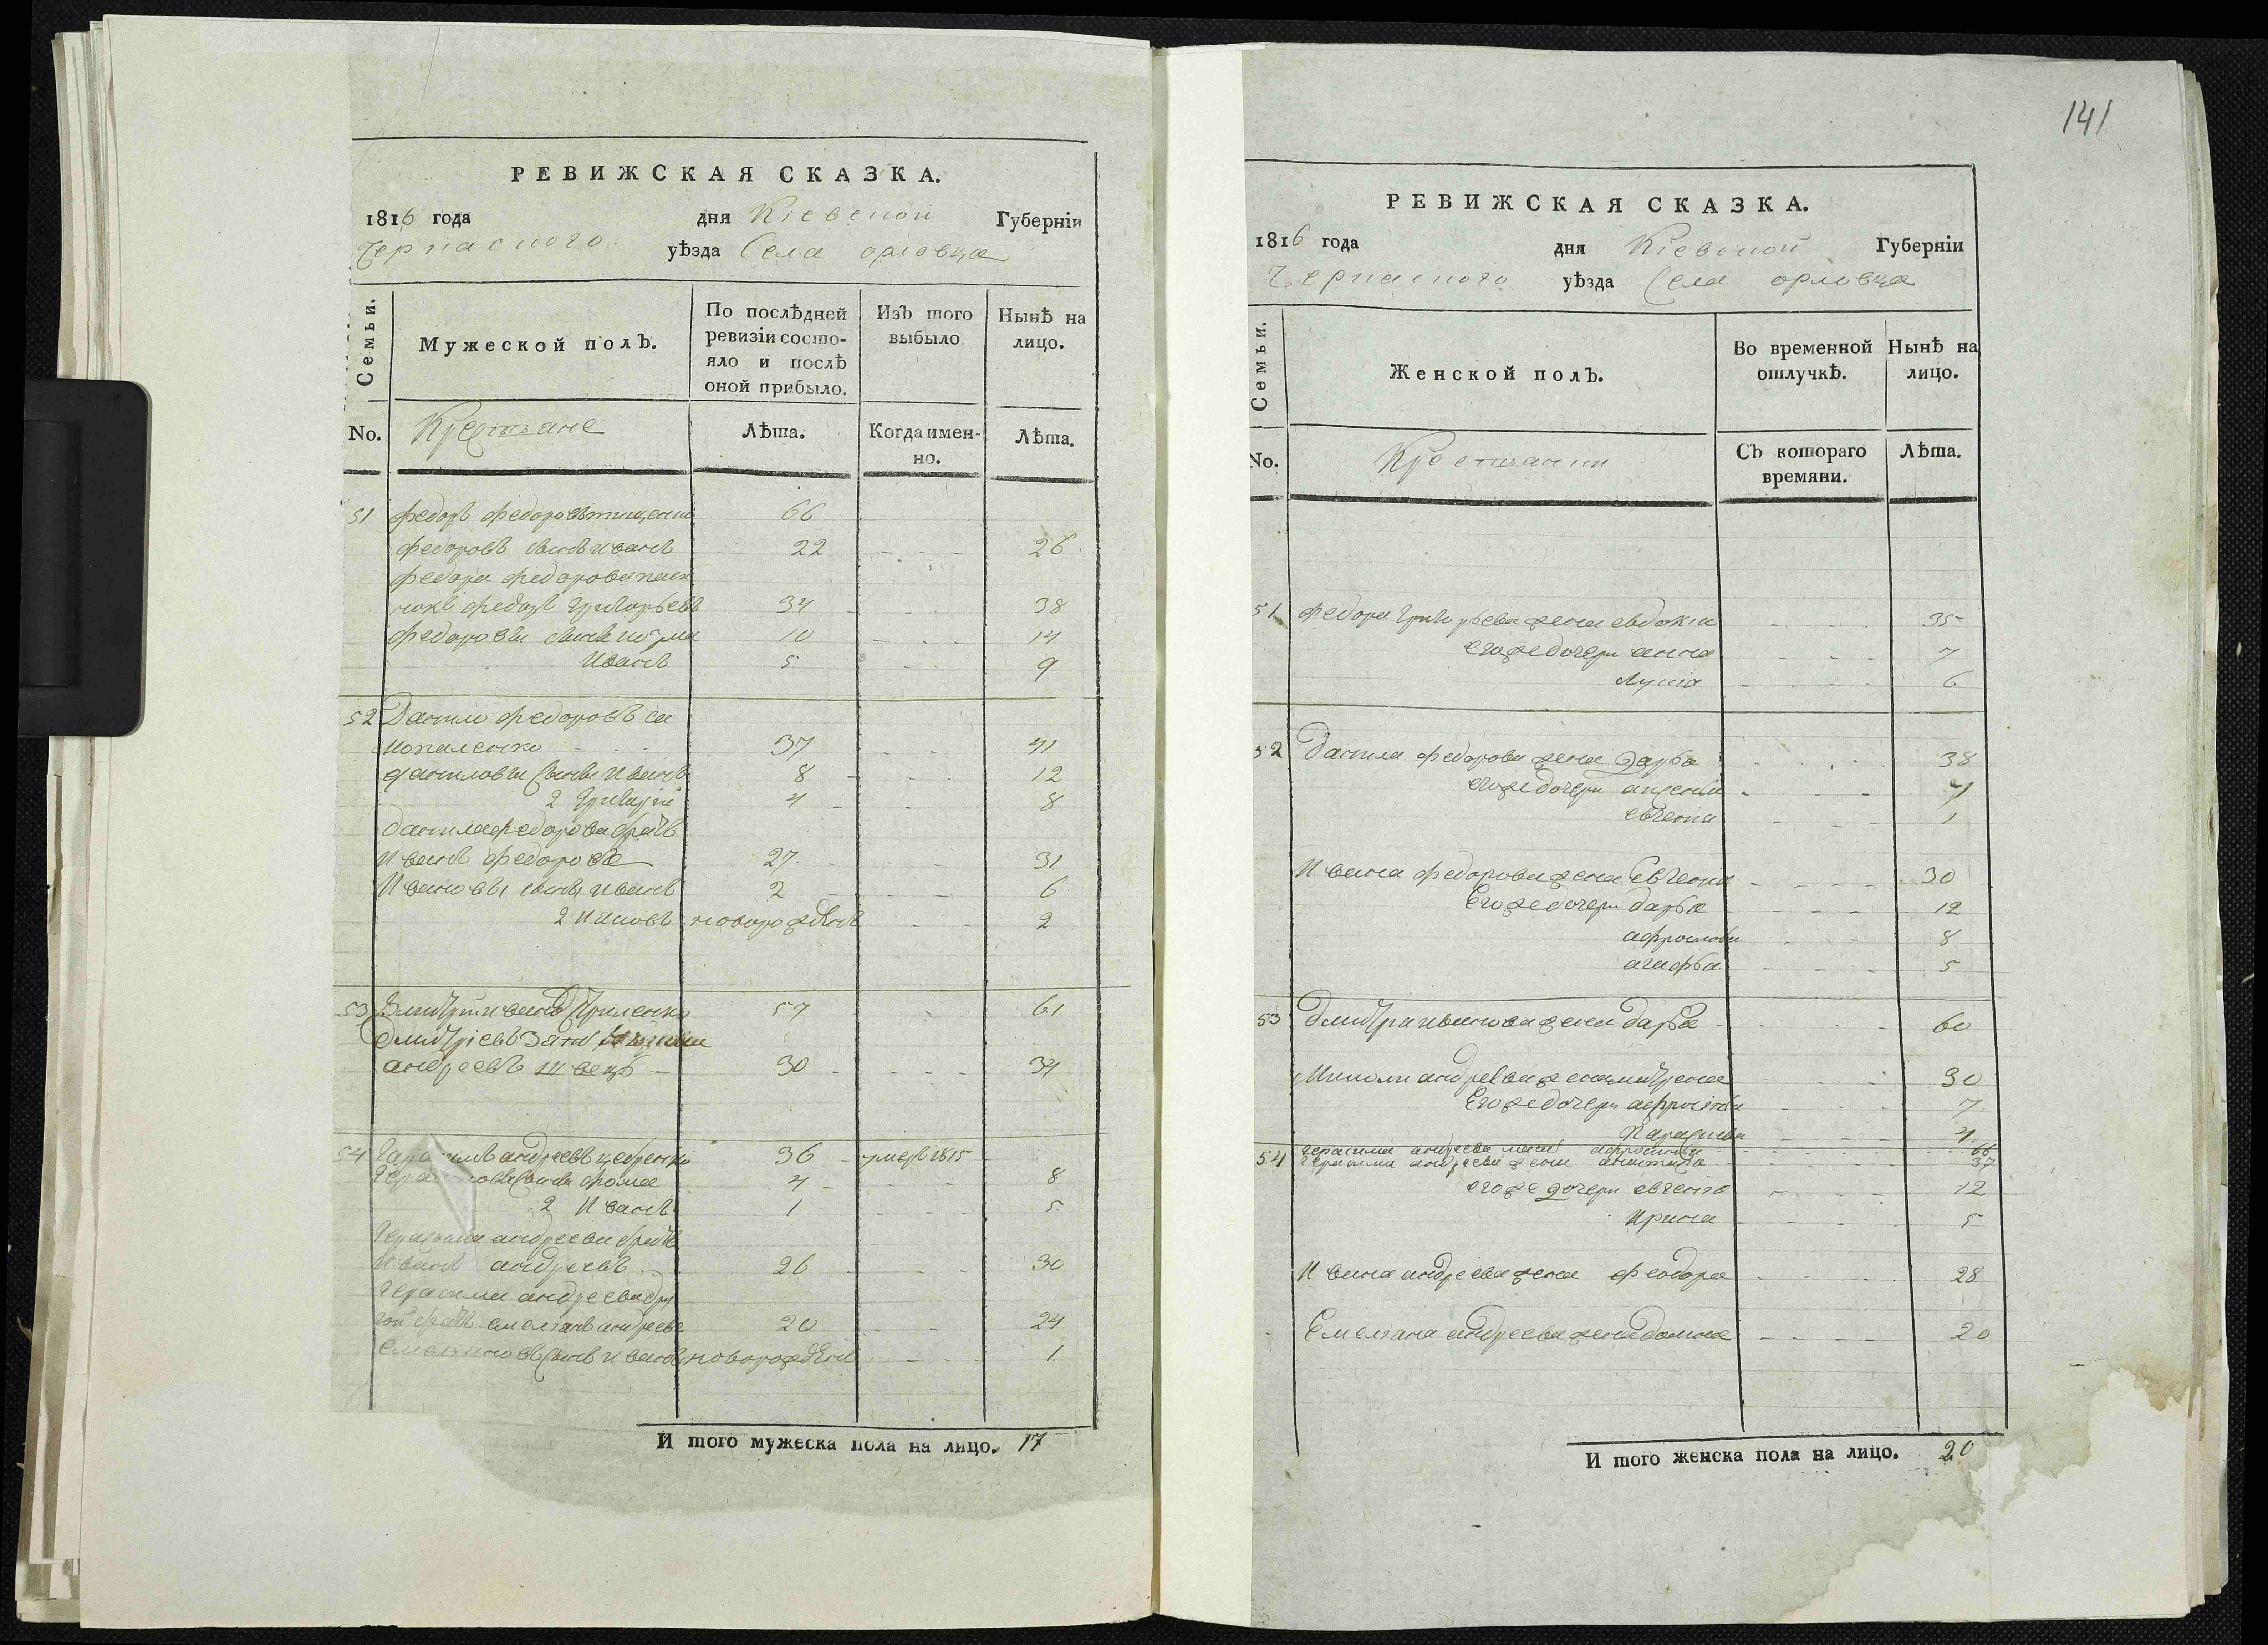 РЕВИЖСКАЯ СКАЗКА.
1816 года дня Кіевской Губерніи
Черкаского уѣзда Села орловца
Семьи.
Мужеской полъ.
По послѣдней ревизіи состояло и послѣ оной прибыло.
Изъ того выбыло
Нынѣ на лицо.
No. Крестьане Лѣта. Когда именно. Лѣта.
51 федоръ федоровъ тищенко 66
федоровъ сынъ иванъ 22 26
федора федорова
федоръ григорьевъ 34 38
федоровы сыновя козма 10 14
Иванъ 5 9
52 Данило федоровъ са
мопаленко 37 41
даниловы сыны Иванъ 8 12
2 григорій 4 8
данила федорова братъ
Иванъ федоровъ 27 31
Ивановы сыны иванъ 2 6
2 новорожденъ 2
53 Дмитрій ивановъ 57 61
дмитріевъ зять
андреевъ швецъ 30 34
54 андреевъ 36 умеръ 1815
сыны фома 4 8
2 Иванъ 1 5
Герасима андреева братъ
Иванъ андреевъ 26 30
Герасима андреева дру
гой братъ емельянъ андреевъ 20 24
сынъ иванъ новорожденъ 1
И того мужеска пола на лицо. 17
141
РЕВИЖСКАЯ СКАЗКА.
1816 года дня Кіевской Губерніи
Черкаского уѣзда Села орловца
Семьи.
Женской полъ.
Во временной отлучкѣ.
Нынѣ на лицо.
No. Съ котораго времяни. Лѣта.
51 федора григорьева жена евдокия 35
егоже дочери анна 7
6
52 данила федорова жена дарья 38
егоже дочери 7
евгения 1
Ивана федорова жена Евгения 30
Егоже дочери дарья 12
8
агафья 5
53 дмитра иванова жена дарья 60
Миколи андреева жена 30
Егоже дочери 7
Параскева 4
54 герасима андреева мать 66
герасима андреева жена 37
егоже дочери евгения 12
Ирина 5
Ивана андреева жена феодора 28
Емельана андреева жена домна 20
И того женска пола на лицо. 20